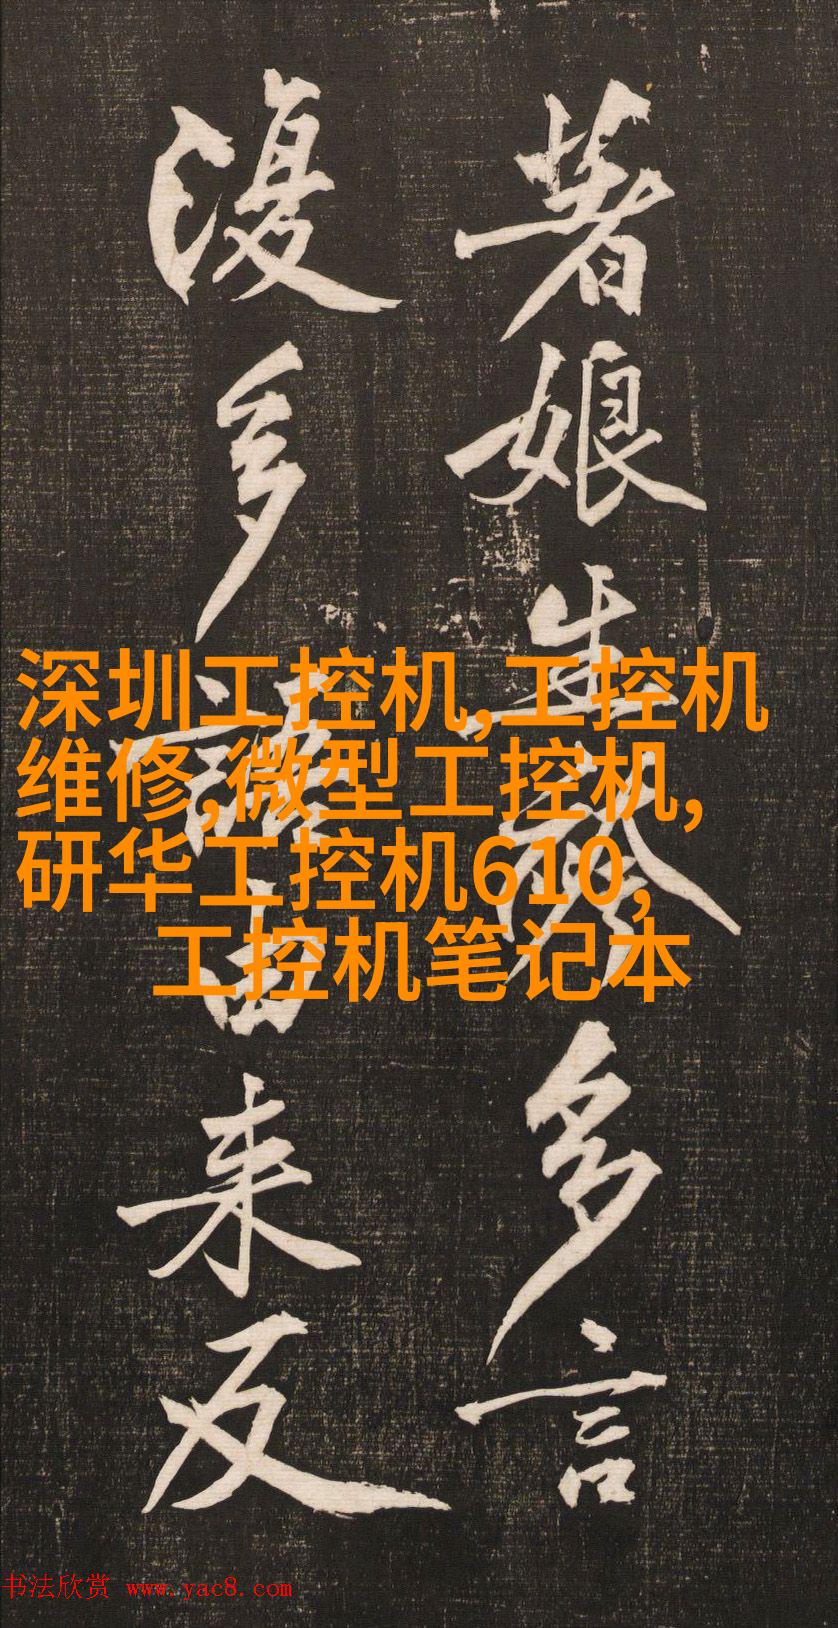 著娘生多言
復多語由来反
深圳工控机,工控机
维修,微型工控机,
研华工控机610,
工控机笔记本
书法欣赏 www.yac8.com